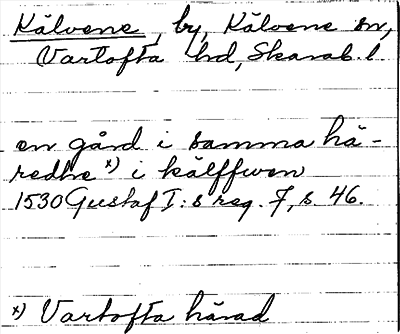 Kälvene, by, Kälvene sn,
Vartofta hd, Skarab. l
en gård i samma hä-
redhe x) i kälffwen
1530 Gustaf I:s reg. 7, s. 46.
x) Vartofta härad